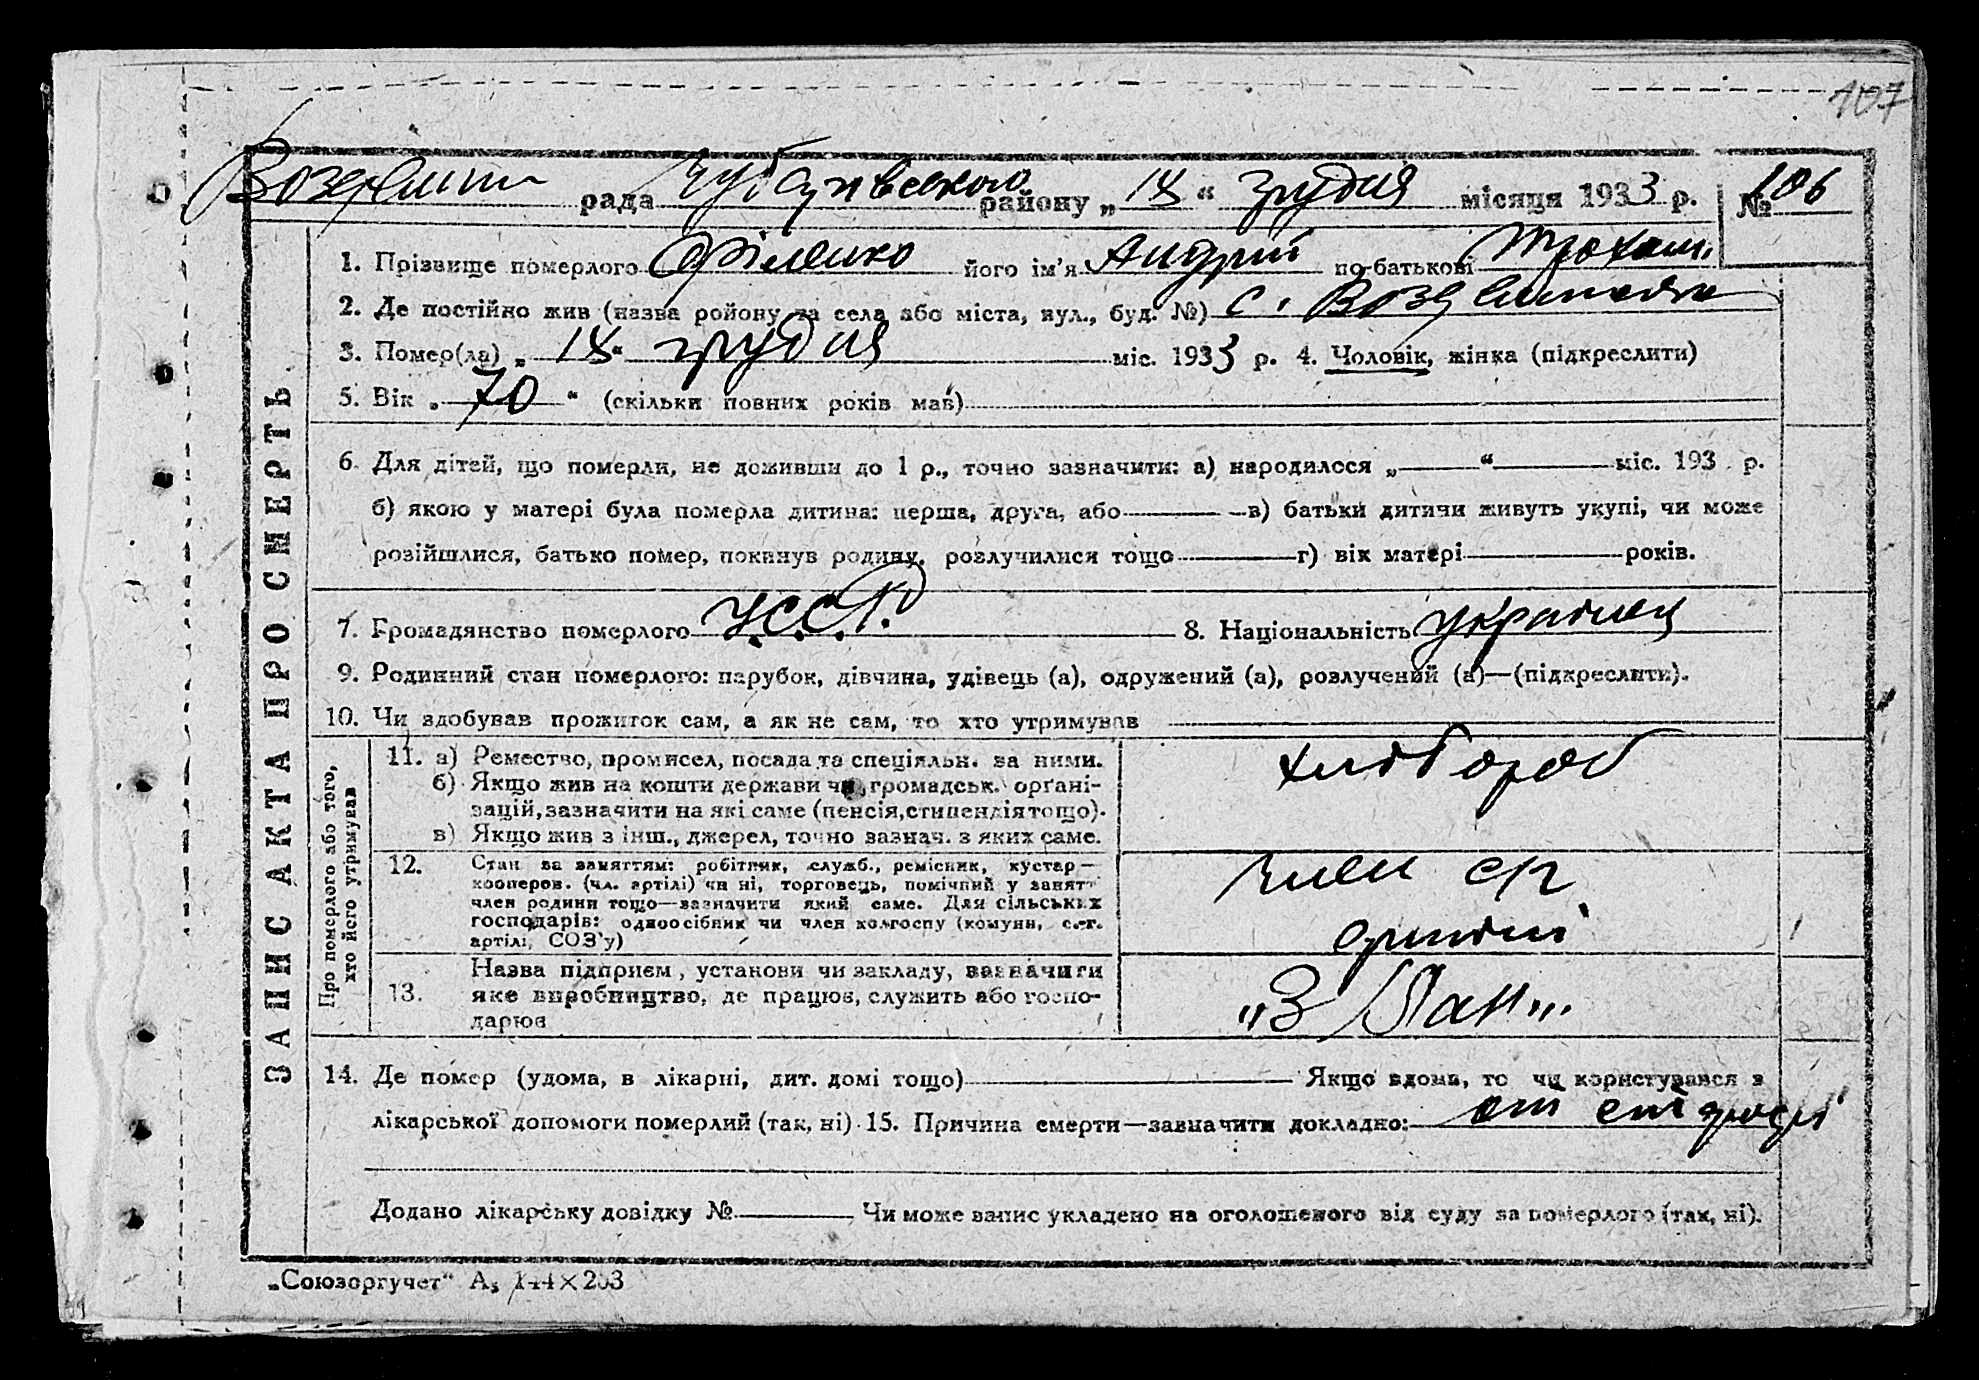 107
рада Чубарівського району „ 18 “ грудня місяця 1933 р. № 106
1. Прізвище померлого Філенко його ім'я Андрій по-батькові
2. Де постійно жив (назва ройону та села або міста, вул., буд. №) с.
3. Помер(ла) „ 18 “ грудня міс. 1933 р. 4. Чоловік, жінка (підкреслити)
5. Вік „ 70 “ (скільки повних років мав)
6. Для дітей, що померли, не доживши до 1 р., точно зазначити: а) народилося „ “ міс. 193 р.
б) якою у матері була померла дитина: перша, друга, або в) батьки дитини живуть укупі, чи може
розійшлися, батько помер, покинув родину, розлучилися тощо г) вік матері років.
7. Громадянство померлого У.С.С.Р. 8. Національність українец
9. Родинний стан померлого: парубок, дівчина, удівець (а), одружений (а), розлучений (а)—(підкреслити).
10. Чи здобував прожиток сам, а як не сам, то хто утримував
ЗАПИС АКТА ПРО СМЕРТЬ
Про померлого або того, хто його утримував
11. а) Ремество, промисел, посада та спеціяльн. за ними.
б) Якщо жив на кошти держави чи громадськ. орґані-
зацій, зазначити на які саме (пенсія, стипендія тощо).
в) Якщо жив з інш., джерел, точно зазнач. з яких саме.
хлібороб
12. Стан за заняттям: робітник, служб., ремісник, кустар—
кооперов. (чл. артілі) чи ні, торговець, помічний у занятт
член родини тощо—зазначити який саме. Для сільських
господарів: одноосібник чи член колгоспу (комуни, с.-г.
артілі, СОЗ'у)
член с/г
артілі
13. Назва підприєм, установи чи закладу, зазначити
яке виробництво, де працюв, служить або госпо-
дарюв
„3
14. Де помер (удома, в лікарні, дит. домі тощо) Якщо вдома, то чи користувався з
лікарської допомоги померлий (так, ні) 15. Причина смерти—зазначити докладно: от
Додано лікарську довідку № Чи може запис укладено на оголошеного від суду за померлого (так, ні).
„Союзоргучет“ А₅ 144×203